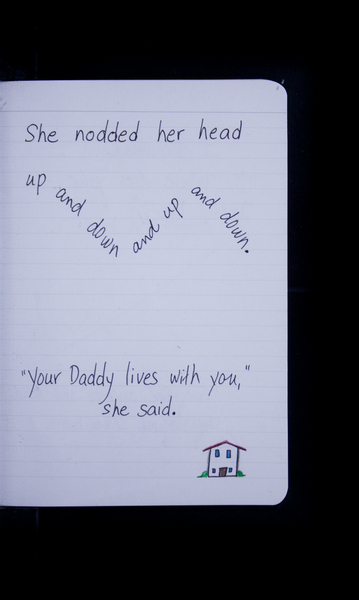 She nodded her head
up and down and up and down.
"Your Daddy lives with you,"
she said.